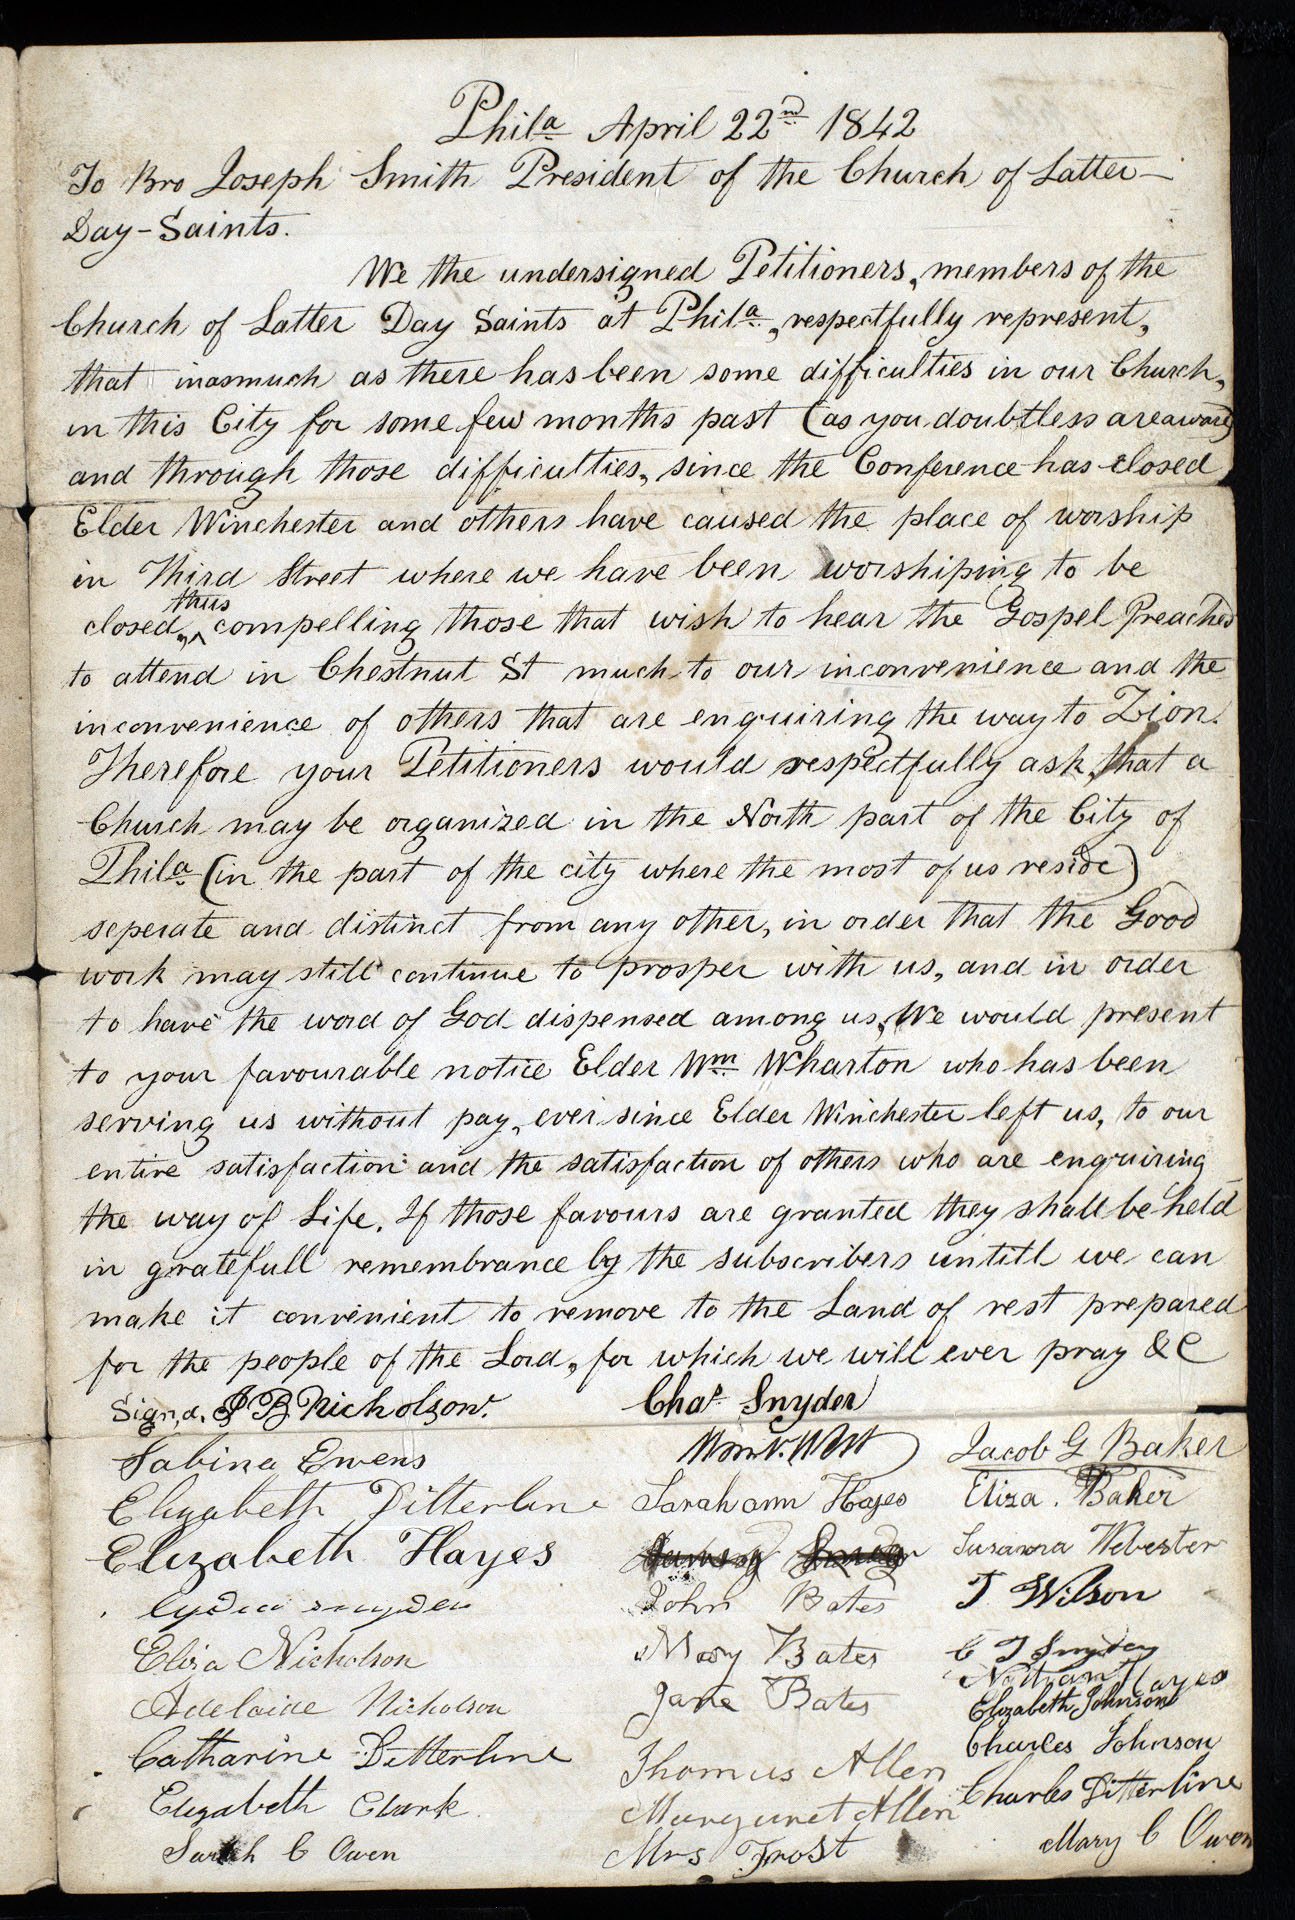 Phila April 22nd 1842
To Bro Joseph Smith President of the Church of Latter-
Day-Saints.
We the undersigned Petitioners, members of the
Church of Latter Day Saints at Phila, respectfully represent,
that inasmuch as there has been some difficulties in our Church,
in this City for some few months past (as you doubtless are aware)
and through those difficulties, since the Conference has closed
Elder Winchester and others have caused the place of worship
in Third Street where we have been worshiping to be
closed, thus compelling those that wish to hear the Gospel Preached
to attend in Chestnut St much to our inconvenience and the
inconvenience of others that are enquiring the way to Zion.
Therefore your Petitioners would respectfully ask, that a
Church may be organized in the North part of the City of
Phila (in the part of the city where the most of us reside)
seperate and distinct from any other, in order that the Good
work may still continue to prosper with us, and in order
to have the word of God dispensed among us, We would present
to your favourable notice Elder Wm Wharton who has been
serving us without pay, ever since Elder Winchester left us, to our
entire satisfaction and the satisfaction of others who are enquiring
the way of Life. If those favours are granted they shall be held
in gratefull remembrance by the subscribers untill we can
make it convenient to remove to the Land of rest prepared
for the people of the Lord, for which we will ever pray &C
Signd. J B Nicholson. Chas Snyder
Sabina Ewens Jacob G Baker
Elizabeth Ditterline Sarahann Hayes Eliza. Baker
Elizabeth Hayes Susanna Webester
Lydia Snyder John Bates T Wilson
Eliza Nicholson Mary Bates C T Snyder
Nathan Hayes
Adelaide Nicholson Jane Bates Elizabeth Johnson
Catharine Ditterline Thomas Allen Charles Johnson
Elizabeth Clark. Margaret Allen Charles Ditterline
Sarah C Owen Mrs Frost Mary C Owen